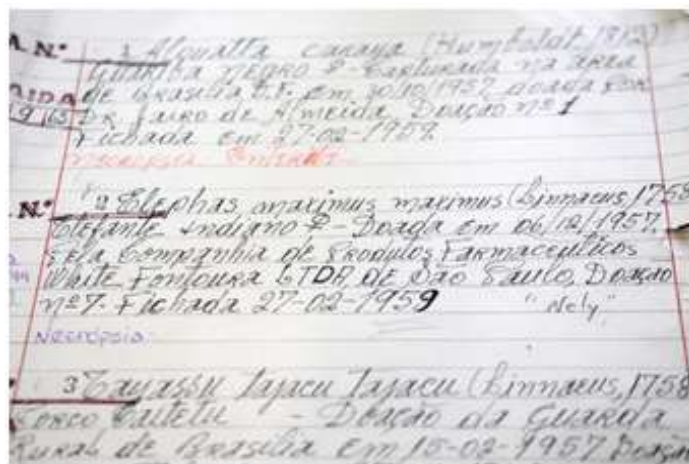 A. Nº 1 Alouatta caraya (Humboldt, 1812)
Guariba negro ♀ - Capturada na área
AIDA de Brasília D.F. em 30/10/1957, doada por
1963 DR. Jairo de Almeida, Doação nº 1
Fichada em 27-02-1959.
Necropsia
A. Nº 2 Elephas maximus maximus (Linnaeus, 1758
Elefante Indiano ♀ - Doada em 06/12/1957.
Pela Companhia de Produtos Farmaceuticos
White Fontoura LTDA DE São Paulo, Doação
nº 7. Fichada 27-02-1959 "Nely"
Necropsia
3 Tayassu tajacu tajacu (Linnaeus, 1758
Porco Caitetu - Doação da Guarda
Rural de Brasilia em 15-02-1957 Doação